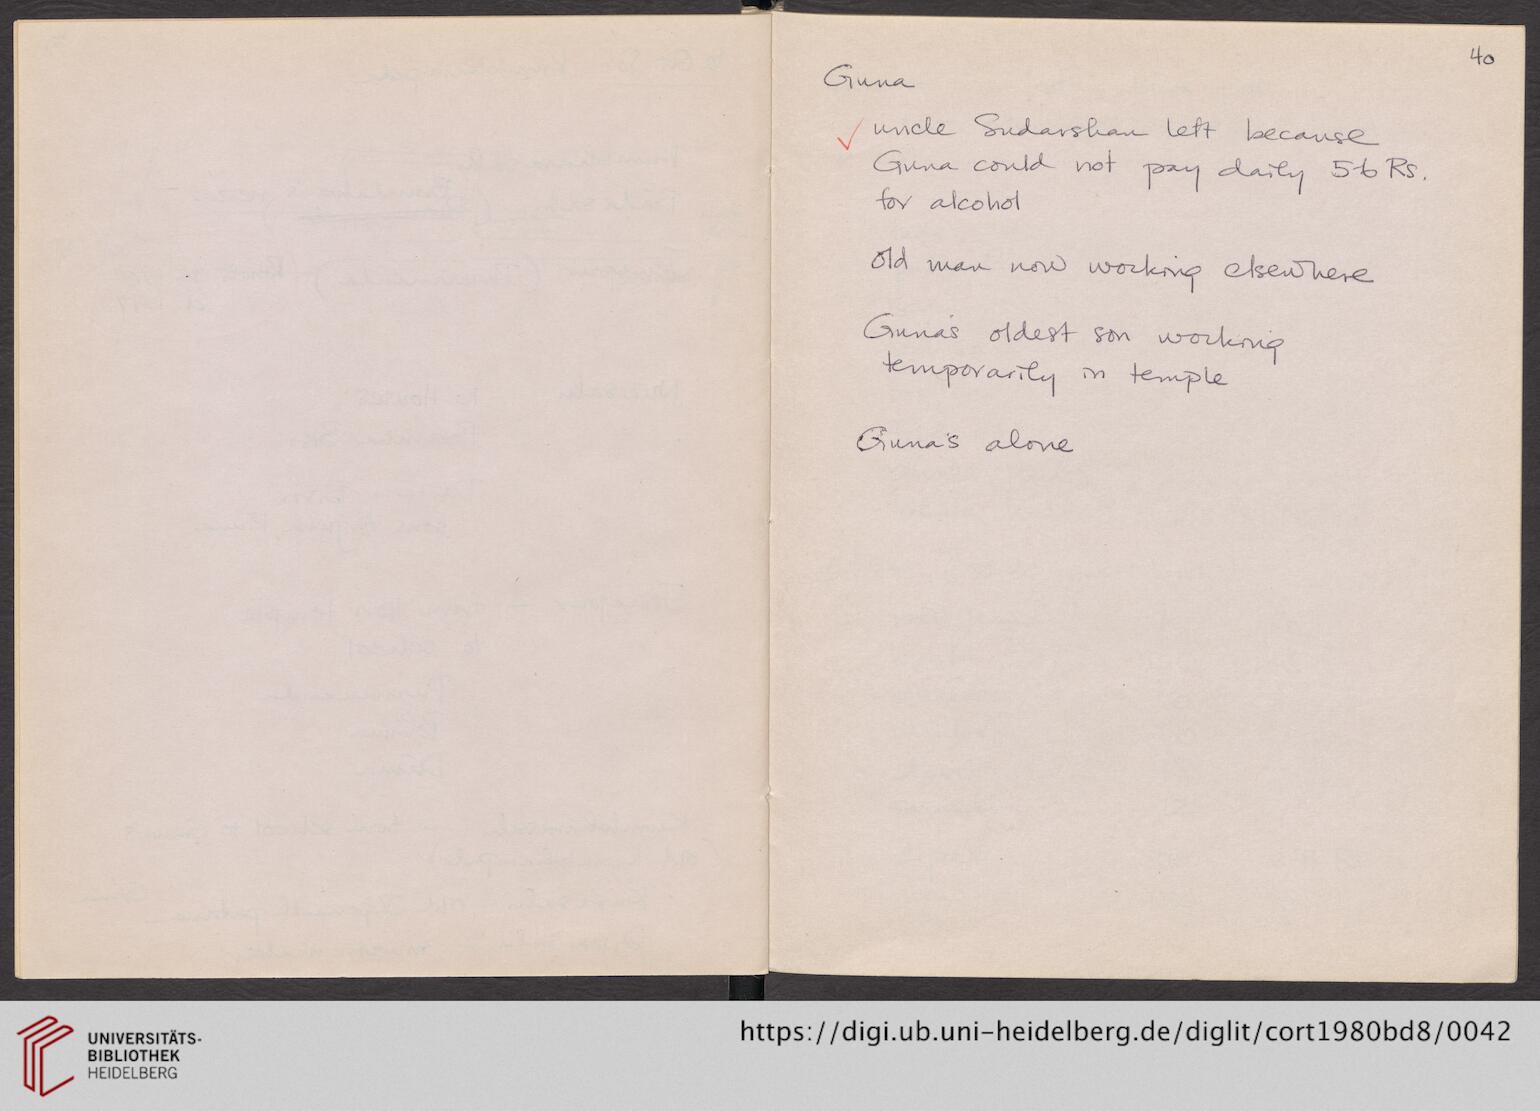 40
Guna
✓ uncle Sudarshan left because
Guna could not pay daily 5-6 Rs.
for alcohol
old man now working elsewhere
Guna's oldest son working
temporarily in temple
Guna's alone
UNIVERSITÄTS-
BIBLIOTHEK
HEIDELBERG
https://digi.ub.uni-heidelberg.de/diglit/cort1980bd8/0042